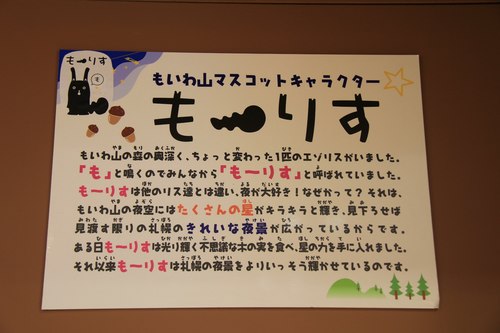 もーりす
す
もいわ山マスコットキャラクター
もーりす
もいわ山の森の奥深く、ちょっと変わった1匹のエゾリスがいました。
「も」と鳴くのでみんなから「もーりす」と呼ばれていました。
もーりすは他のリス達とは違い、夜が大好き！なぜかって？それは、
もいわ山の夜空にはたくさんの星がキラキラと輝き、見下ろせば
見渡す限りの札幌のきれいな夜景が広がっているからです。
ある日もーりすは光り輝く不思議な木の実を食べ、星の力を手に入れました。
それ以来もーりすは札幌の夜景をよりいっそう輝かせているのです。